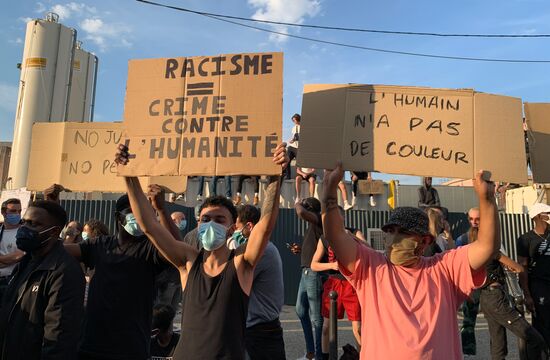 RACISME
=
CRIME
CONTRE
L'HUMANITÉ
L'HUMAIN
N'A PAS
DE COULEUR
NO JU
NO PE